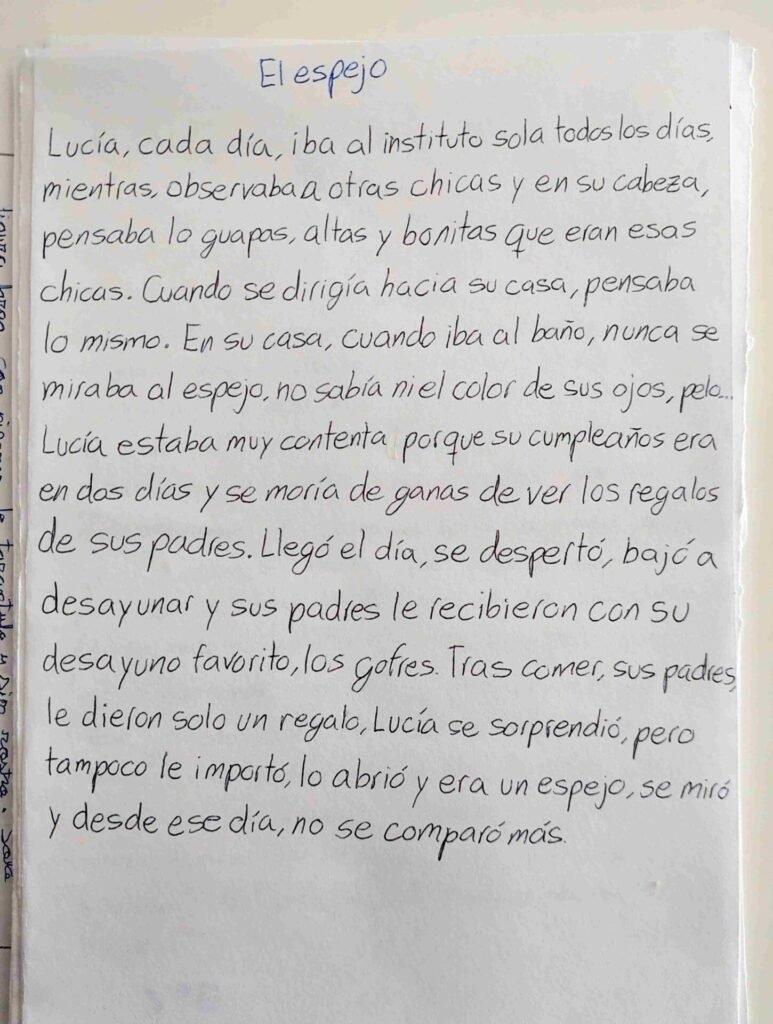 El espejo
Lucía, cada día, iba al instituto sola todos los días,
mientras, observaba a otras chicas y en su cabeza,
pensaba lo guapas, altas y bonitas que eran esas
chicas. Cuando se dirigía hacia su casa, pensaba
lo mismo. En su casa, cuando iba al baño, nunca se
miraba al espejo, no sabía ni el color de sus ojos, pelo...
Lucía estaba muy contenta porque su cumpleaños era
en dos días y se moría de ganas de ver los regalos
de sus padres. Llegó el día, se despertó, bajó a
desayunar y sus padres le recibieron con su
desayuno favorito, los gofres. Tras comer, sus padres,
le dieron solo un regalo, Lucía se sorprendió, pero
tampoco le importó, lo abrió y era un espejo, se miró
y desde ese día, no se comparó más.